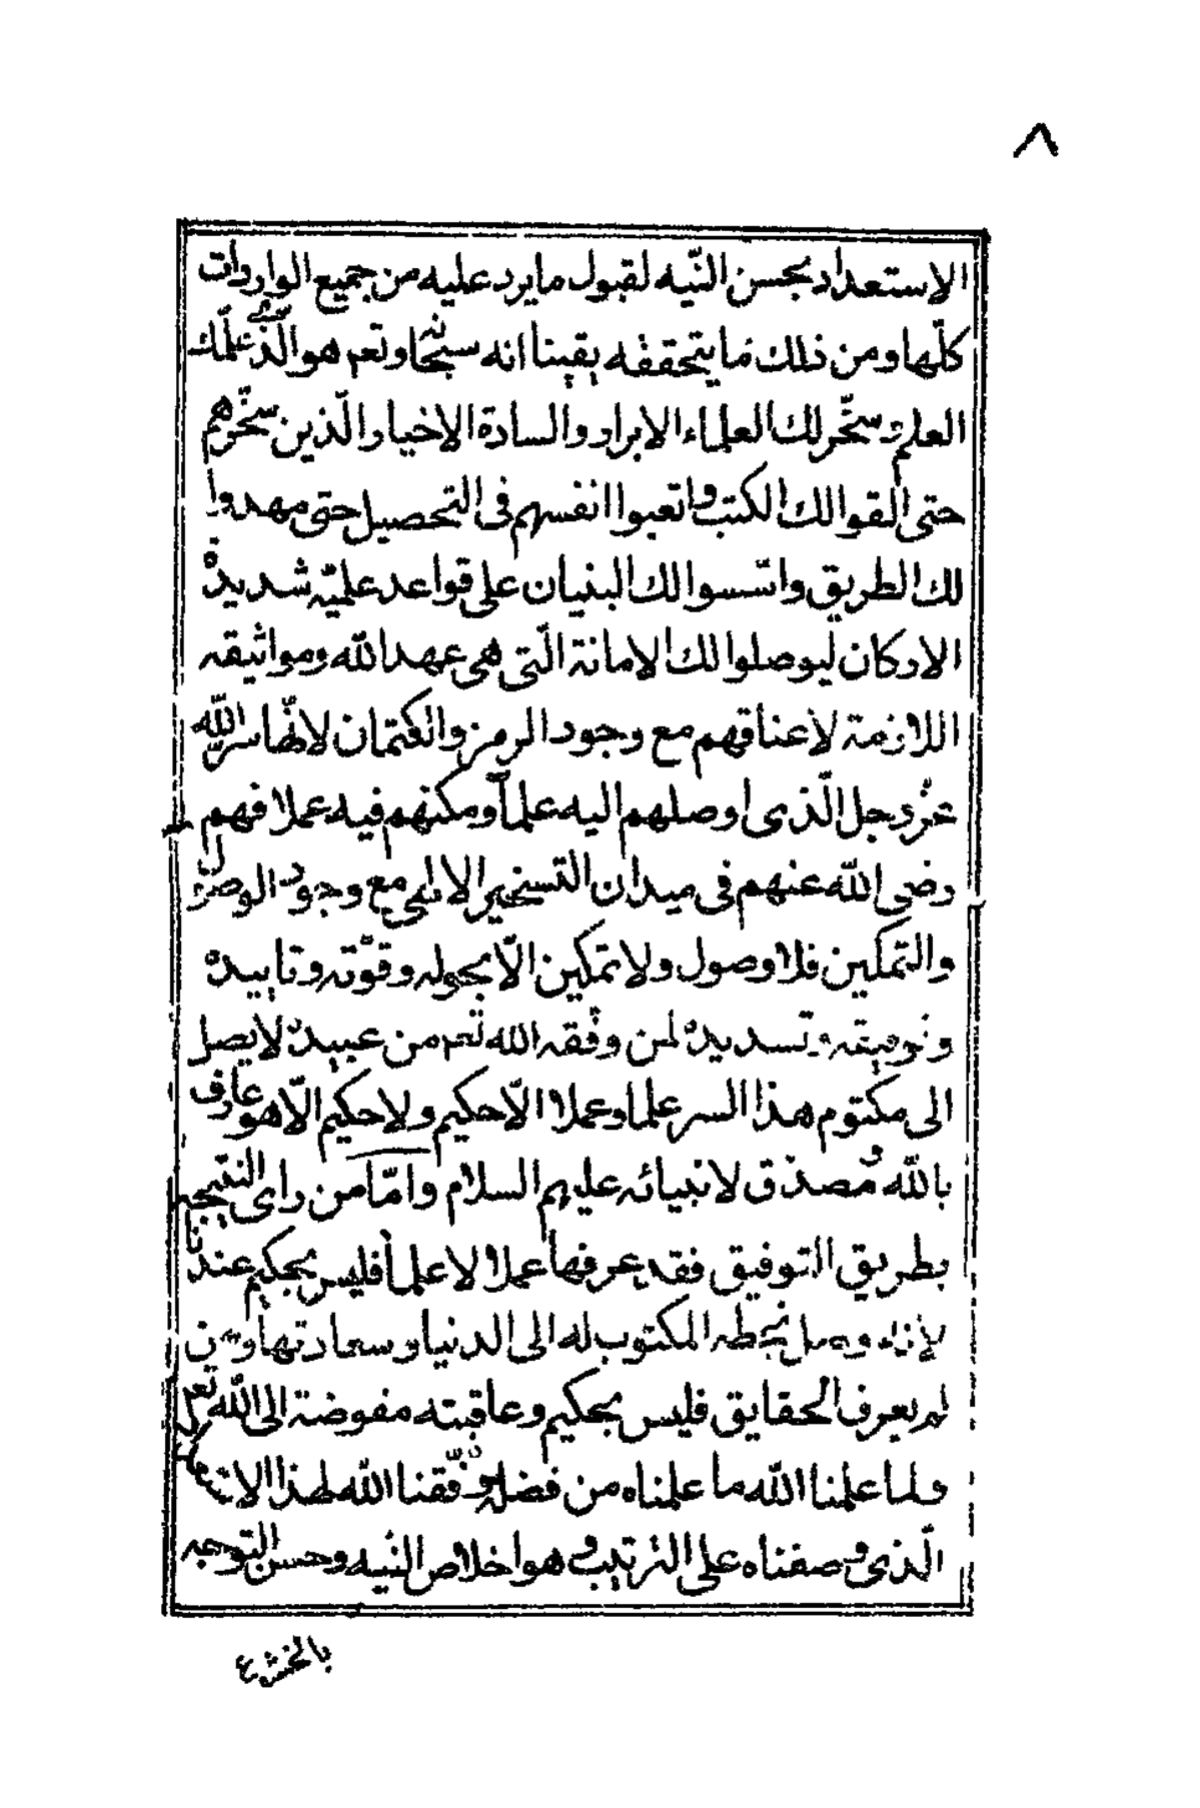 ٨
الاستعداد بحسن النّيه لقبول ما يرد عليه من جميع الواردات
كلّها ومن ذلك ما يتحققه يقينا انه سبحانه وتعم هو الّذى علّمك
العلم وسخّر لك العلماء الابرار والسادة الاخيار الّذين سخّرهم
حتى القوا لك الكتب واتعبوا انفسهم فى التحصيل حتى مهدوا
لك الطريق واسّسوا لك البنيان على قواعد علميّه شديدة
الاركان ليوصلوا لك الامانة الّتى هى عهد الله ومواثيقه
اللازمة لاعناقهم مع وجود الرمز والكتمان لانّها سر اللّه
عزّ وجل الّذى اوصلهم اليه علماً ومكنهم فيه عملا فهم
رضى اللّه عنهم فى ميدان التسخير الالهى مع وجود الوصول
والتمكين فلا وصول ولا تمكين الّا بحوله وقوّته وتاييده
وتوفيقه وتسديده لمن وفّقه الله تعم من عبيده لا يصل
الى مكتوم هذا السر علما وعملا الّا حكيم ولا حكيم الّا هو عارف
باللّه ومصدّق لانبيائه عليهم السلام وامّا من راى النتيجه
بطريق التوفيق فقد عرفها عملا لا علماً فليس بحكيم عندنا
لانه وصل بحظه المكتوب له الى الدنيا وسعادتها ومن
لم يعرف الحقايق فليس بحكيم وعاقبته مفوضة الى اللّه تعم
ولما علمنا اللّه ما علمناه من فضله ووفّقنا اللّه لهذا
الّذى وصفناه على الترتيب وهو اخلاص النيه وحسن التوجه
بالخشوع